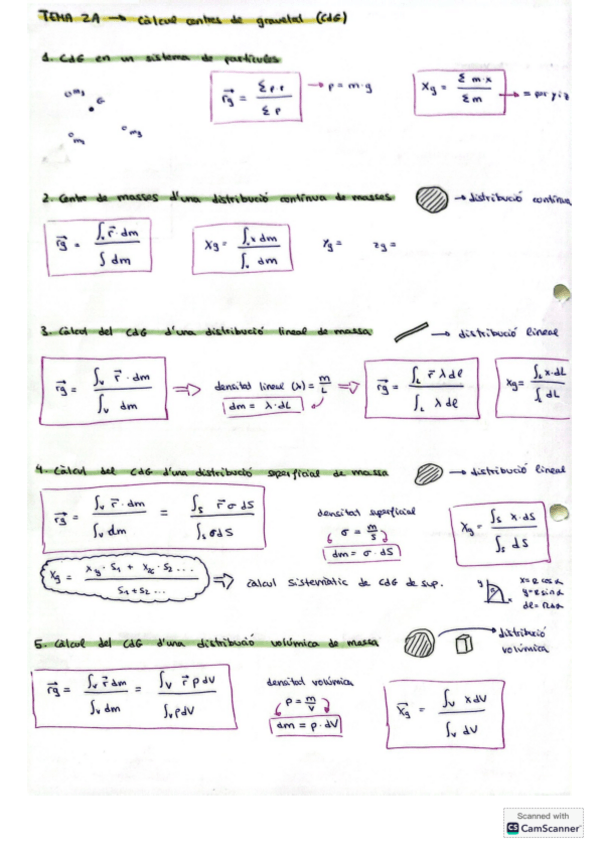 TEMA 2A → Càlcul centres de gravetat (CdG)
1. CdG en un sistema de partícules
m3
G
m1
m2
r⃗g = Σ p·r / Σ p → p = m·g
Xg = Σ m·x / Σ m → = per y i z
2. Centre de masses d'una distribució contínua de masses → distribució contínua
r⃗g = ∫v r⃗·dm / ∫ dm
Xg = ∫v x dm / ∫v dm
Yg =
Zg =
3. Càlcul del CdG d'una distribució lineal de massa → distribució lineal
r⃗g = ∫v r⃗·dm / ∫v dm ⇒ densitat lineal (λ) = m/L ⇒ r⃗g = ∫L r⃗ λ dl / ∫L λ dl
dm = λ·dL
Xg = ∫L x·dL / ∫ dL
4. Càlcul del CdG d'una distribució superficial de massa → distribució lineal
r⃗g = ∫v r⃗·dm / ∫v dm = ∫s r⃗ σ dS / ∫s σ dS
densitat superficial
σ = m/S
dm = σ·dS
Xg = ∫s x·dS / ∫s dS
Xg = X1g·S1 + X2g·S2 ... / S1+S2 ... ⇒ càlcul sistemàtic de CdG de sup.
x = R cos α
y = R sin α
dl = R dα
5. Càlcul del CdG d'una distribució volúmica de massa → distribució volúmica
r⃗g = ∫v r⃗ dm / ∫v dm = ∫v r⃗ ρ dV / ∫v ρ dV
densitat volúmica
ρ = m/V
dm = ρ·dV
x⃗g = ∫v x dV / ∫v dV
Scanned with
CS CamScanner